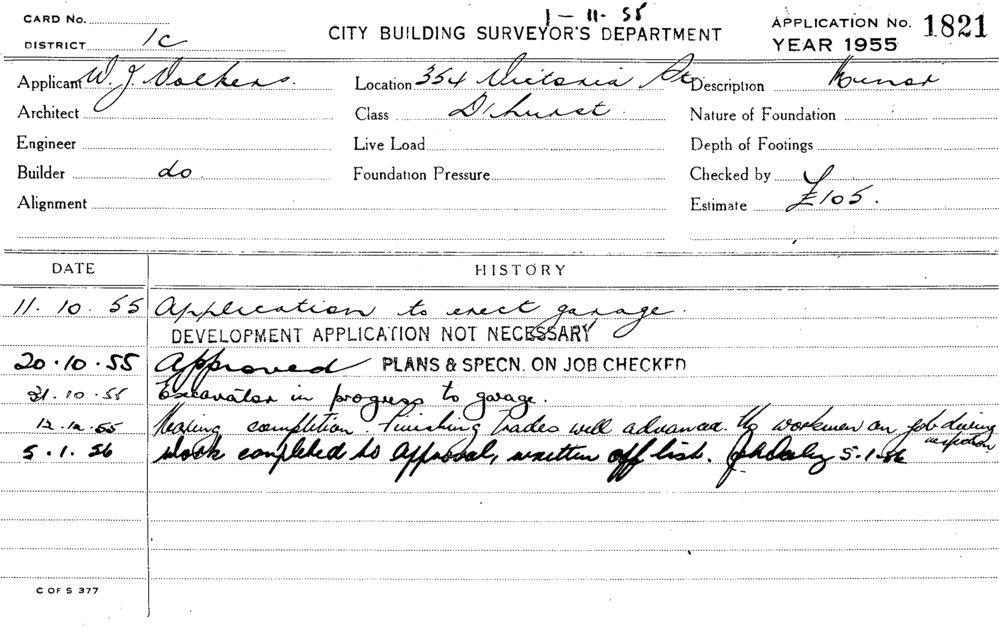 1-11-55
CARD No.
CITY BUILDING SURVEYOR'S DEPARTMENT
APPLICATION No. 1821
DISTRICT 1c
YEAR 1955
Applicant W. J. Volkers. Location 354 Victoria St Description Minor
Architect Class D'hurst. Nature of Foundation
Engineer Live Load Depth of Footings
Builder do Foundation Pressure Checked by
Alignment Estimate £105.
DATE HISTORY
11.10.55 Application to erect garage.
DEVELOPMENT APPLICATION NOT NECESSARY
20.10.55 Approved PLANS & SPECN. ON JOB CHECKED
31.10.55 Excavation in progress to garage.
12.12.55 Nearing completion. Finishing trades well advanced. No workmen on job during inspection
5.1.56 Work completed to approval, written off list. 5.1.56
C OF S 377